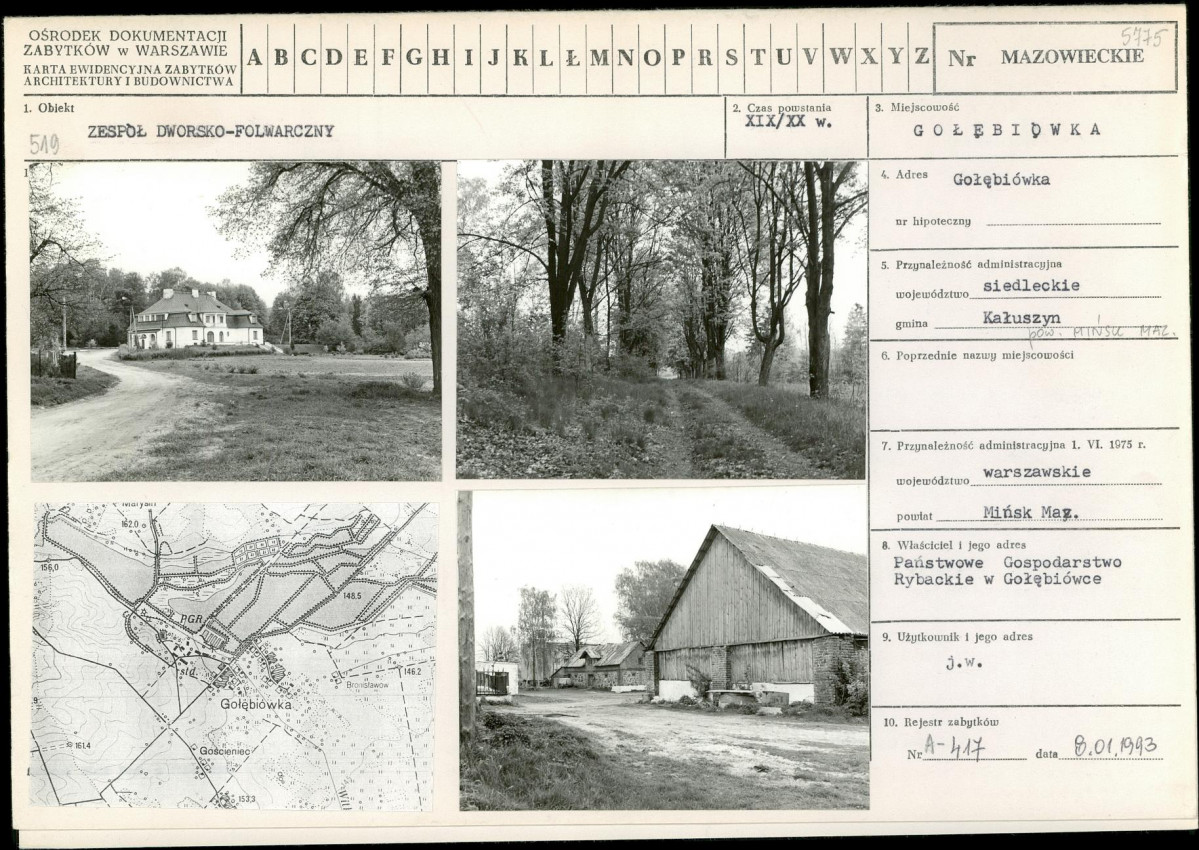 OŚRODEK DOKUMENTACJI
ZABYTKÓW w WARSZAWIE
KARTA EWIDENCYJNA ZABYTKÓW
ARCHITEKTURY I BUDOWNICTWA
A B C D E F G H I J K L Ł M N O P R S T U V W X Y Z
Nr MAZOWIECKIE
5775
1. Obiekt
519
ZESPÓŁ DWORSKO-FOLWARCZNY
2. Czas powstania
XIX/XX w.
3. Miejscowość
GOŁĘBIÓWKA
4. Adres Gołębiówka
nr hipoteczny
5. Przynależność administracyjna
województwo siedleckie
gmina Kałuszyn
pow. MIŃSK MAZ.
6. Poprzednie nazwy miejscowości
7. Przynależność administracyjna 1. VI. 1975 r.
województwo warszawskie
powiat Mińsk Maz.
8. Właściciel i jego adres
Państwowe Gospodarstwo
Rybackie w Gołębiówce
9. Użytkownik i jego adres
j.w.
10. Rejestr zabytków
Nr A-417 data 8.01.1993
Marysin
162.0
156,0
148.5
PGR
std.
146.2
Bronisławów
Gołębiówka
161.4
Gościeniec
153,3